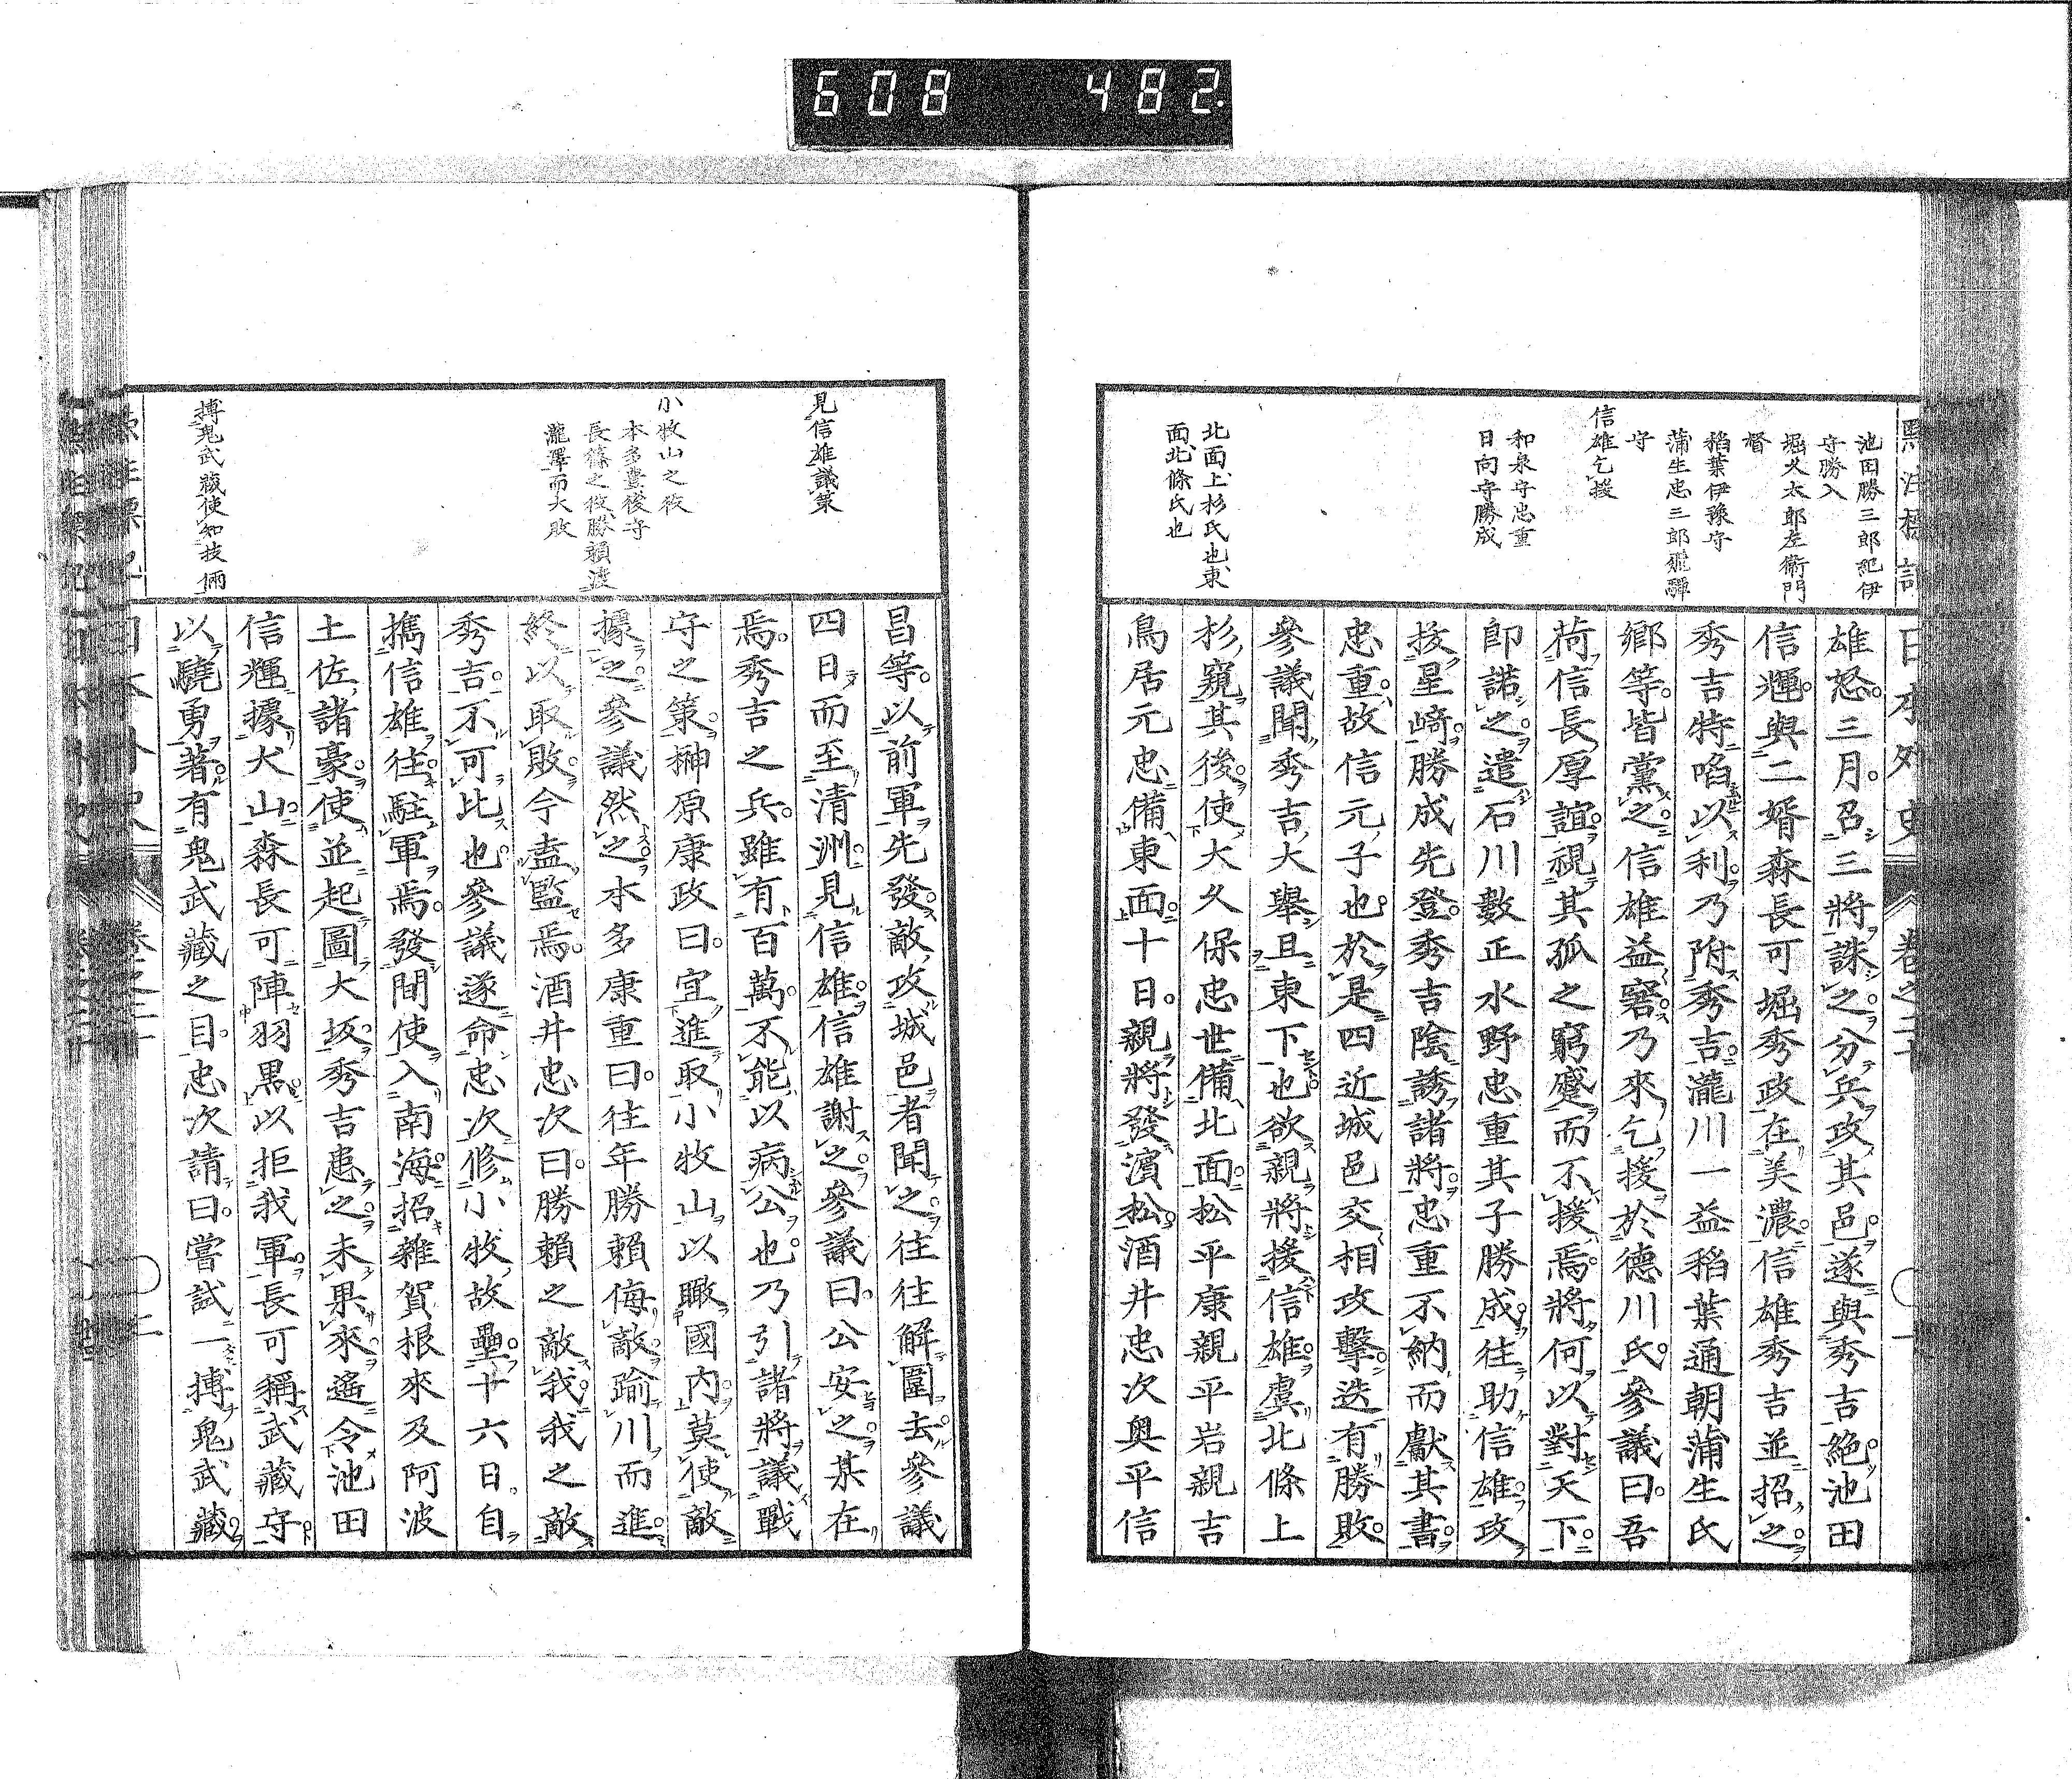 608 482.
日本外史 卷之二十 一
池田勝三郎紀伊
守勝入
堀久太郎左衛門
督
稻葉伊豫守
蒲生忠三郎飛驒
守
信雄乞援
和泉守忠重
日向守勝成
北面上杉氏也東
面北條氏也
雄怒三月召三將誅之分兵攻其邑遂與秀吉絕池田
信輝與二婿森長可堀秀政在美濃信雄秀吉並招之
秀吉特啗以利乃附秀吉瀧川一益稻葉通朝蒲生氏
鄉等皆黨之信雄益窘乃來乞援於德川氏參議曰吾
荷信長厚誼視其孤之窮蹙而不援焉將何以對天下
卽諾之遣石川數正水野忠重其子勝成往助信雄攻
拔星崎勝成先登秀吉陰誘諸將忠重不納而獻其書
忠重故信元子也於是四近城邑交相攻擊迭有勝敗
參議聞秀吉大舉且東下也欲親將援信雄虞北條上
杉窺其後使大久保忠世備北面松平康親平岩親吉
鳥居元忠備東面十日親將發濱松酒井忠次奧平信
見信雄議策
小牧山之役
本多豐後守
長篠之役勝賴渡
瀧澤而大敗
搏鬼武藏使知技倆
昌等以前軍先發敵攻城邑者聞之往往解圍去參議
四日而至清洲見信雄信雄謝之參議曰公安之某在
焉秀吉之兵雖有百萬不能以病公也乃引諸將議戰
守之策榊原康政曰宜進取小牧山以瞰國內莫使敵
據之參議然之本多康重曰往年勝賴侮敵踰川而進
終以取敗今盍監焉酒井忠次曰勝賴之敵我我之敵
秀吉不可比也參議遂命忠次修小牧故壘十六日自
擕信雄往駐軍焉發間使入南海招雜賀根來及阿波
土佐諸豪使並起圖大坂秀吉患之未果來遙令池田
信輝據犬山森長可陣羽黑以拒我軍長可稱武藏守
以驍勇著有鬼武藏之目忠次請曰嘗試一搏鬼武藏